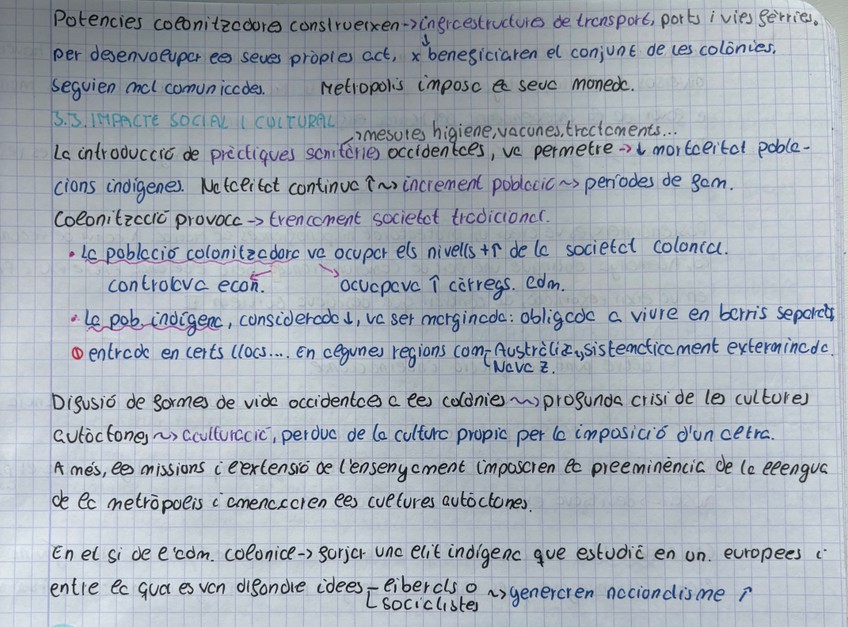 Potencies colonitzadores construeixen -> infraestructures de transport, ports i vies fèrries.
per desenvolupar les seves pròpies act, x beneficiaren el conjunt de les colònies.
Seguien mal comunicades. Metropolis imposa la seva moneda.
3.3. IMPACTE SOCIAL I CULTURAL
-> mesures higiene, vacunes, tractaments...
La introducció de pràctiques sanitàries occidentals, va permetre -> ↓ mortalitat pobla-
cions indígenes. Natalitat continua ↑ ~> increment població ~> períodes de fam.
Colonització provoca -> trencament societat tradicional.
• La població colonitzadora va ocupar els nivells + ↑ de la societat colonial.
controlava econ. ocupava ↑ càrregs. adm.
• La pob. indígena, considerada ↓, va ser marginada: obligada a viure en barris separats
entrada en certs llocs... En algunes regions com Austràlia, sistemàticament exterminada.
Nava Z.
Difusió de formes de vida occidentals a les colònies ~> profunda crisi de les cultures
autòctones ~> aculturació, perdua de la cultura propia per la imposició d'un altra.
A més, les missions i l'extensió de l'ensenyament imposaren la preeminència de la llengua
de la metròpolis i amenaçaren les cultures autòctones.
En el si de l'adm. colonial -> forjar una elit indígena que estudià en un. europees i
entre la qual es van difondre idees - liberals o ~> generaren nacionalisme ↑
socialistes